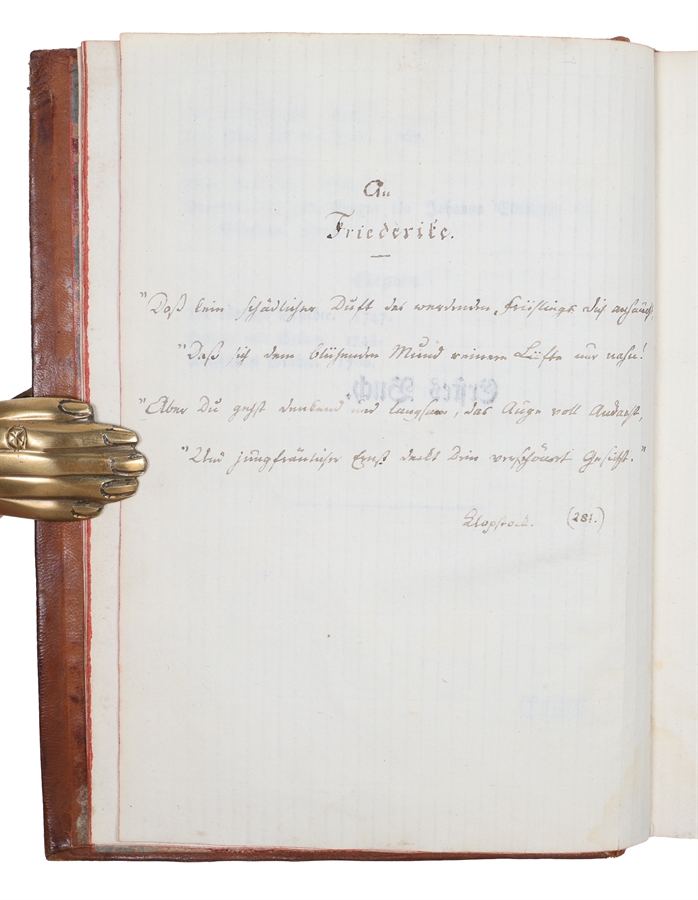 An
Friederike.
"Daß kein schädlicher Duft des werdenden Frühlings dich anhauch,
"Daß sich dem blühenden Mund reinere Lüfte nur nahn!
"Aber Du gehst denkend und langsam, das Auge voll Andacht,
"Und jungfräulicher Ernst deckt Dein verschönert Gesicht."
Klopstock. (281.)
Erstes Buch.